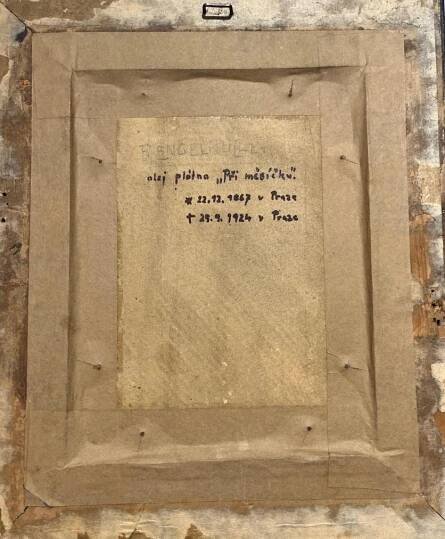 olej plátno „Při měsíčku".
* 22.12.1867 v Praze
† 29.9.1924 v Praze